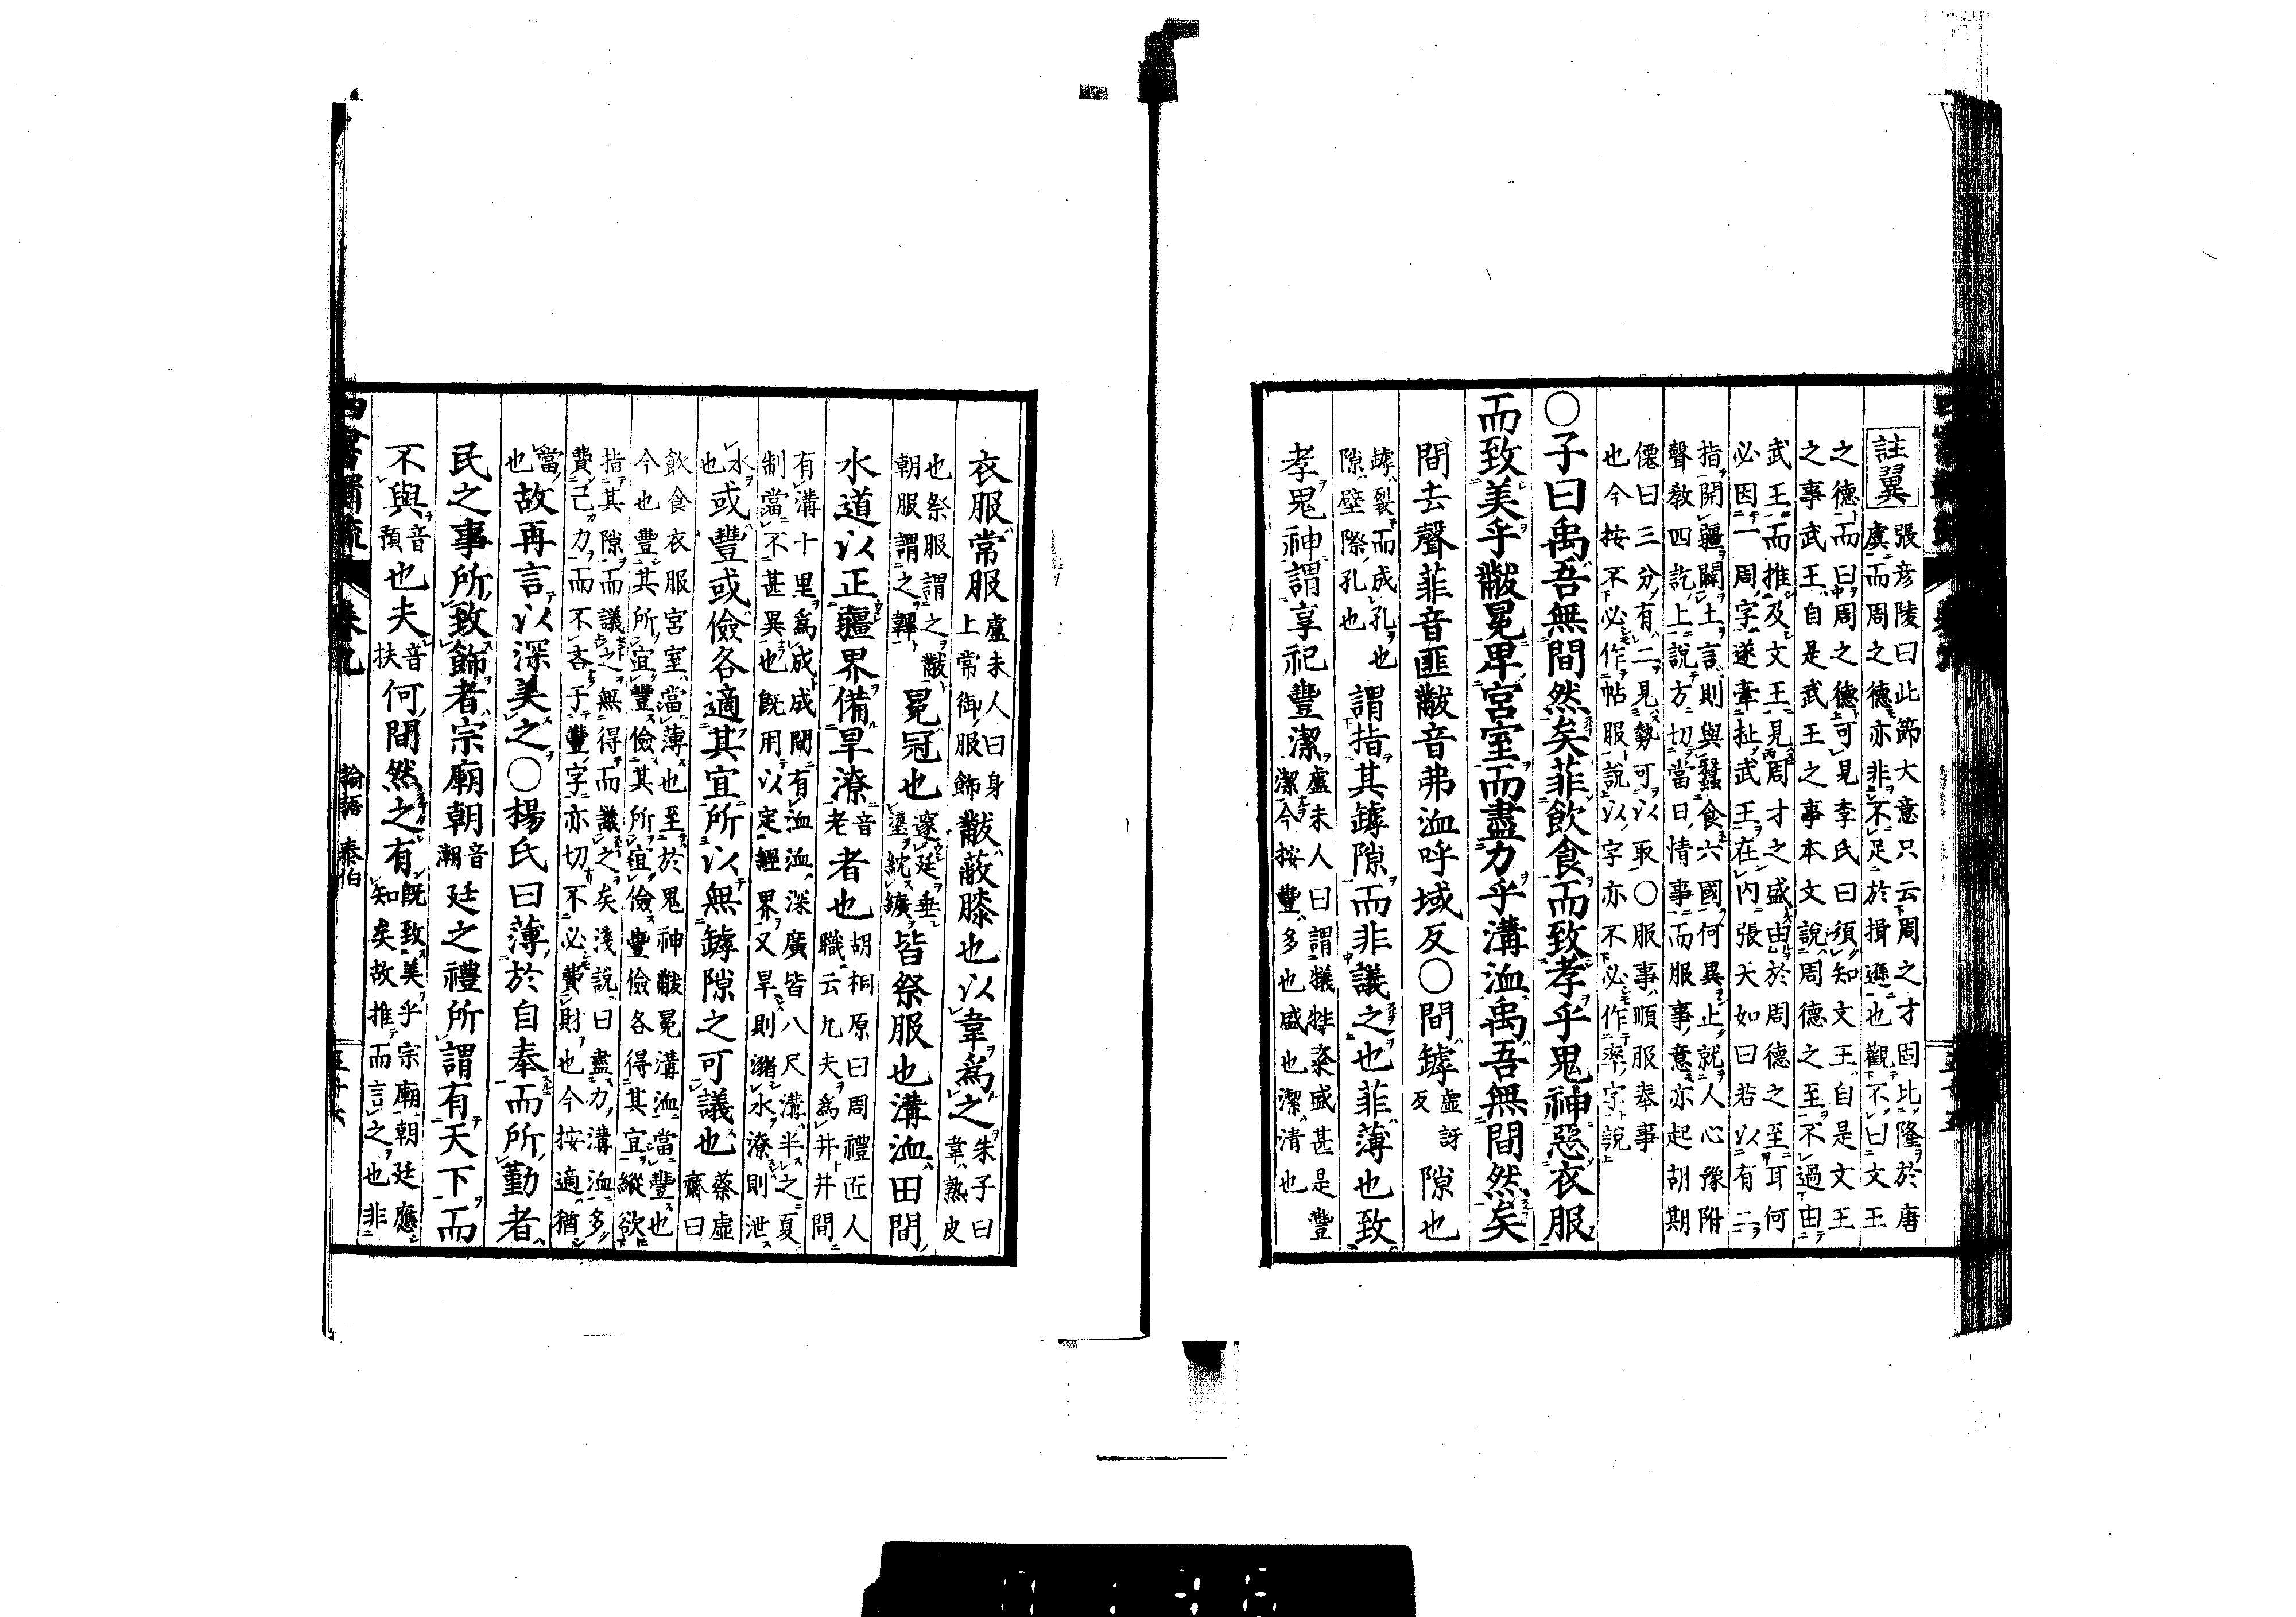 註翼
張彦陵曰此節大意只云周之才固比隆於唐
虞而周之德亦非不足於揖遜也觀不曰文王
之德而曰周之德可見李氏曰須知文王自是文王
之事武王自是武王之事本文說周德之至不過由
武王而推及文王見周才之盛由於周德之至耳何
必因一周字遂牽扯武王在內張天如曰若以有二
指開疆闢土言則與蠶食六國何異止就人心豫附
聲敎四訖上說方切當日情事而服事意亦起胡期
僊曰三分有二見勢可以取○服事順服奉事
也今按不必作帖服說以字亦不必作率字說
○子曰禹吾無間然矣菲飲食而致孝乎鬼神惡衣服
而致美乎黻冕卑宮室而盡力乎溝洫禹吾無間然矣
間去聲菲音匪黻音弗洫呼域反○間罅
虛訝
反
隙也
罅裂而成孔也
隙壁際孔也
謂指其罅隙而非議之也菲薄也致
孝鬼神謂享祀豐潔
盧未人曰謂犧牲粢盛甚是豐
潔今按豐多也盛也潔清也
衣服常服
盧未人曰身
上常御服飾
黻蔽膝也以韋爲之
朱子曰
韋熟皮
也祭服謂之黻
朝服謂之韠
冕冠也
邃延垂
瑬紞纊
皆祭服也溝洫田間
水道以正疆界備旱潦
音
老
者也
胡桐原曰周禮匠人
職云九夫爲井井間
有溝十里爲成成間有洫洫深廣皆八尺溝半之夏
制當不甚異也旣用以定經界又旱則瀦水潦則泄
水
也
或豐或儉各適其宜所以無罅隙之可議也
蔡虛
齋曰
飲食衣服宮室當薄也至於鬼神黻冕溝洫當豐也
今也豐其所宜豐儉其所宜儉豐儉各得其宜縱欲
指其隙而議之無得而議之矣淺說曰盡力溝洫多
費己力而不吝于豐字亦切不必費財也今按適猶
當
也
故再言以深美之○楊氏曰薄於自奉而所勤者
民之事所致飾者宗廟朝
音
潮
廷之禮所謂有天下而
不與
音
預
也夫
音
扶
何間然之有
旣致美乎宗廟朝廷應
知矣故推而言之也非
論語 泰伯